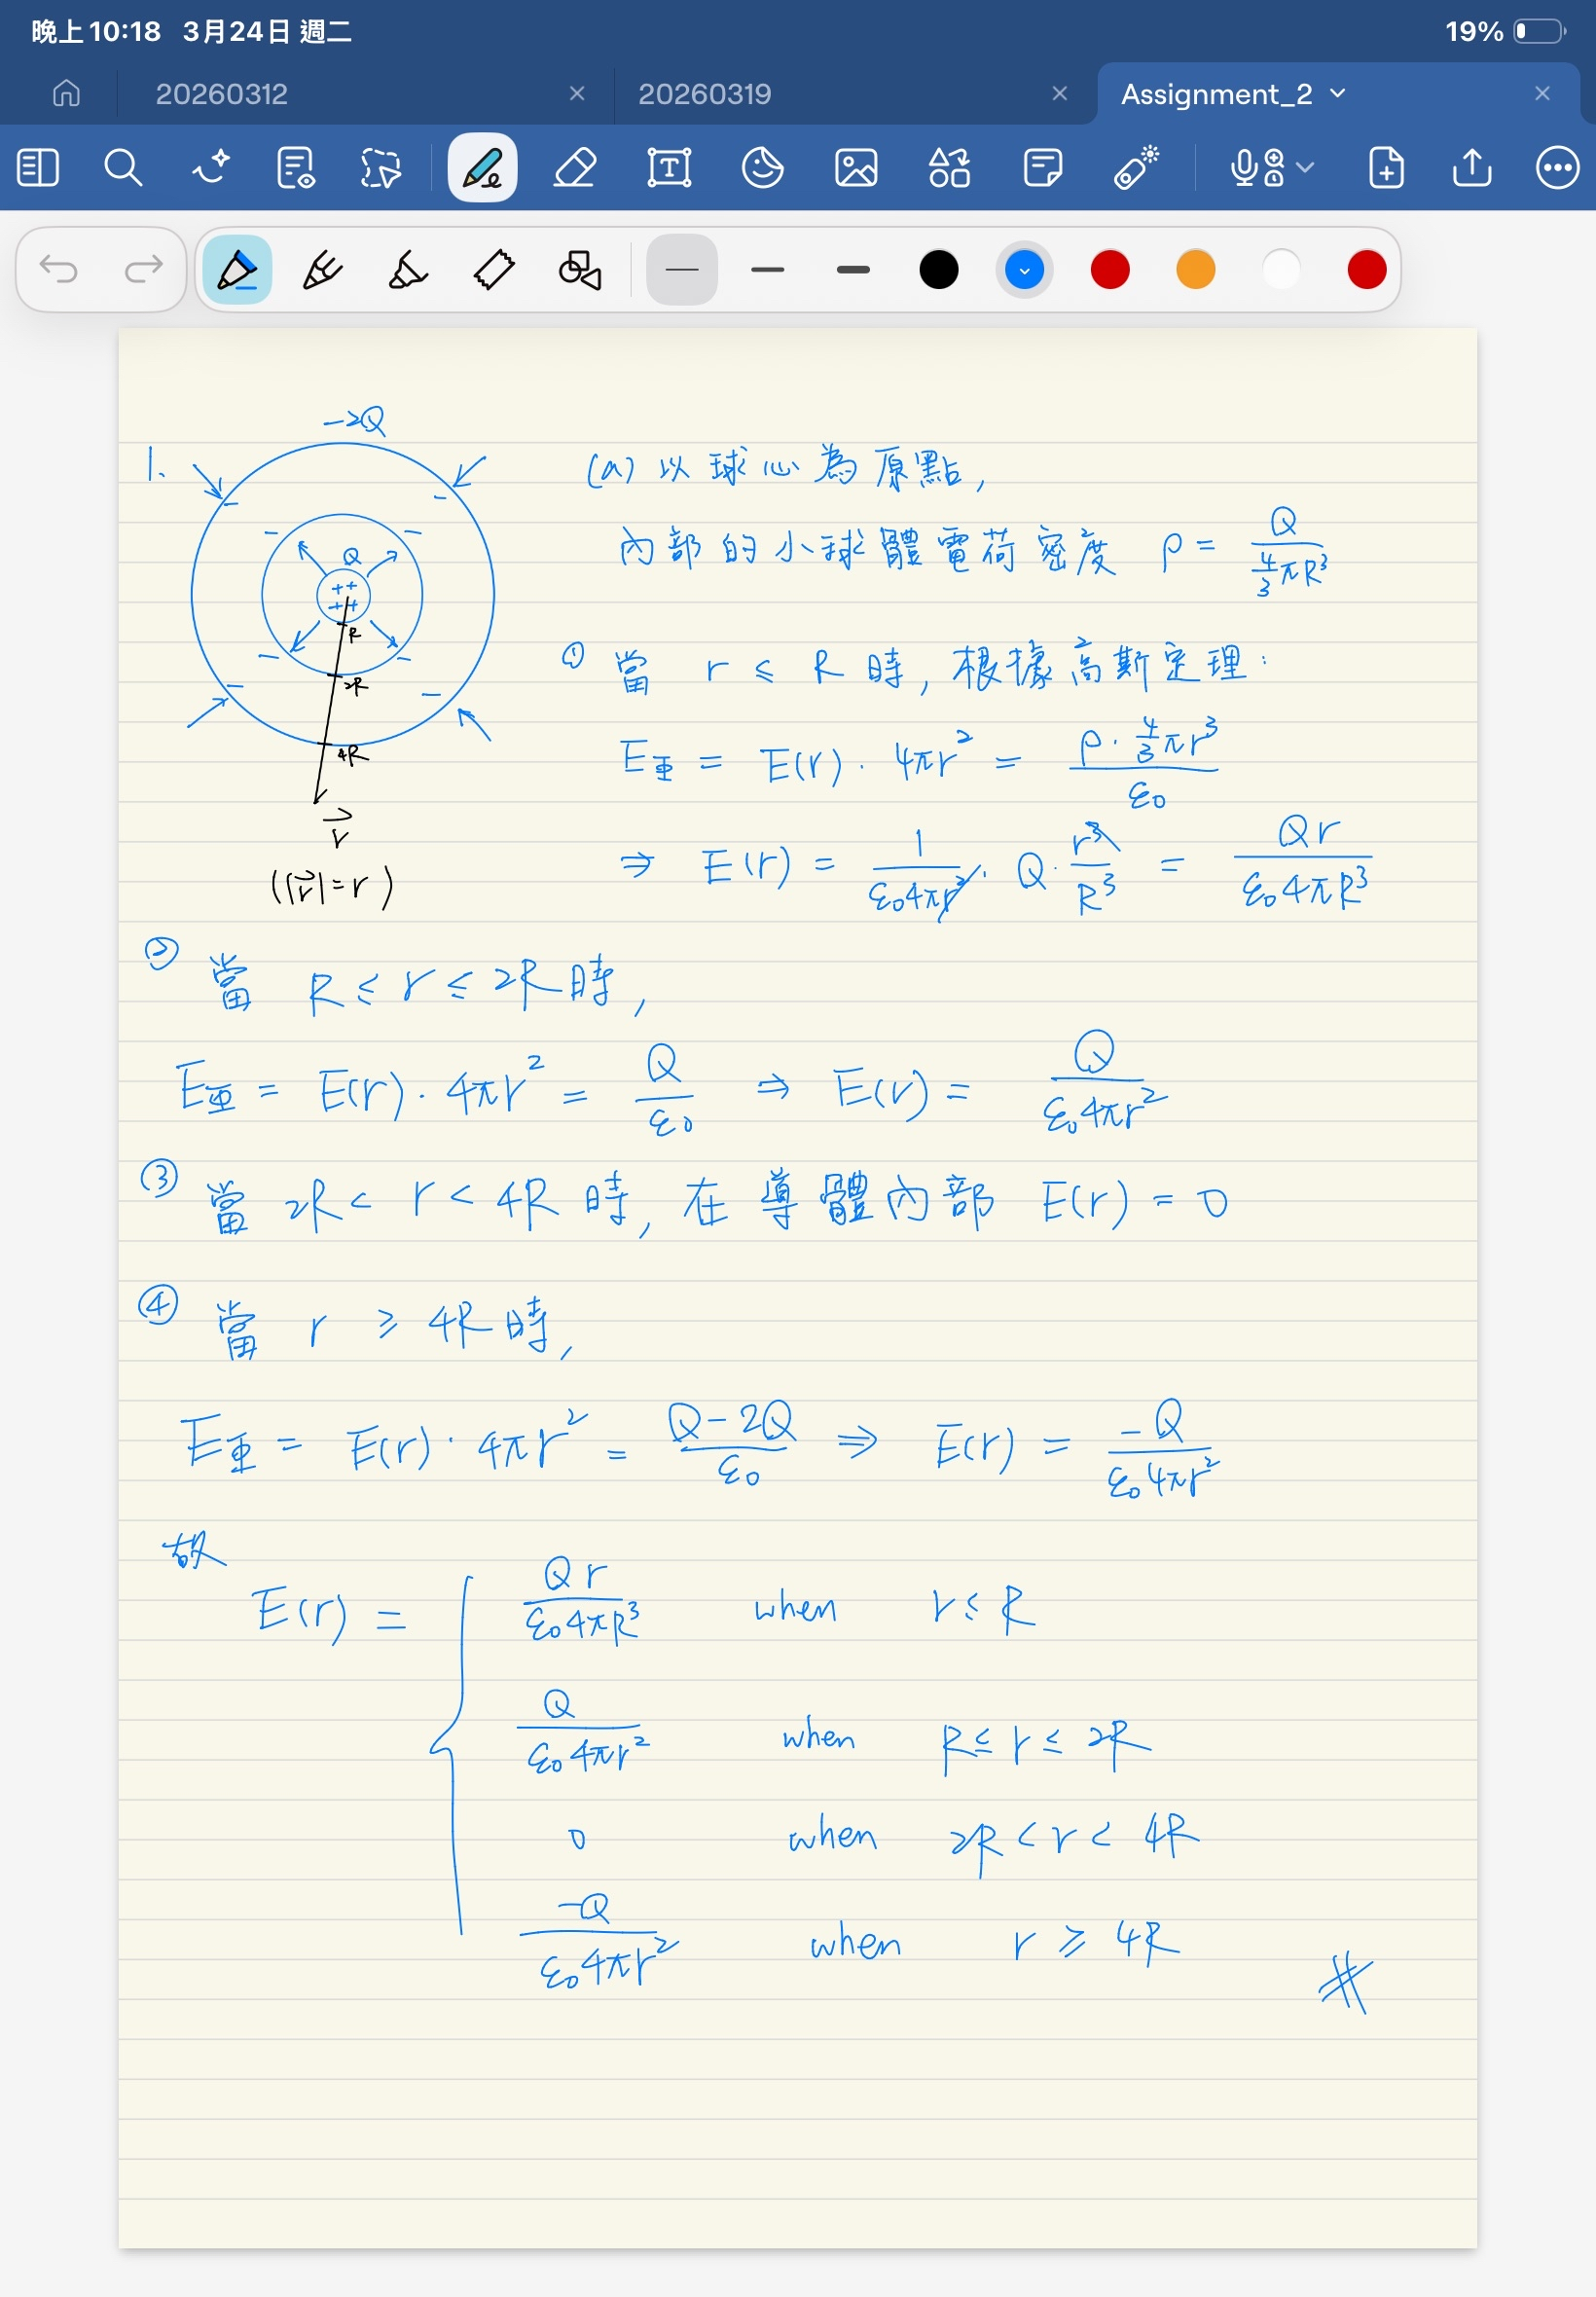 晚上10:18 3月24日 週二 19%
20260312 20260319 Assignment_2
1.
-2Q
Q
++
++
R
2R
4R
r⃗
(|r⃗|=r)
(a) 以球心為原點,
內部的小球體電荷密度 ρ = Q / (4/3 πR³)
① 當 r ≤ R 時, 根據高斯定理:
E重 = E(r) · 4πr² = (ρ · 4/3 πr³) / ε₀
⇒ E(r) = 1/(ε₀4πr²) · Q · r³/R³ = Qr / (ε₀4πR³)
② 當 R ≤ r ≤ 2R 時,
E重 = E(r) · 4πr² = Q/ε₀ ⇒ E(r) = Q / (ε₀4πr²)
③ 當 2R < r < 4R 時, 在導體內部 E(r) = 0
④ 當 r ≥ 4R 時,
E重 = E(r) · 4πr² = (Q-2Q)/ε₀ ⇒ E(r) = -Q / (ε₀4πr²)
故
E(r) = { Qr / (ε₀4πR³) when r ≤ R
Q / (ε₀4πr²) when R ≤ r ≤ 2R
0 when 2R < r < 4R
-Q / (ε₀4πr²) when r ≥ 4R
#